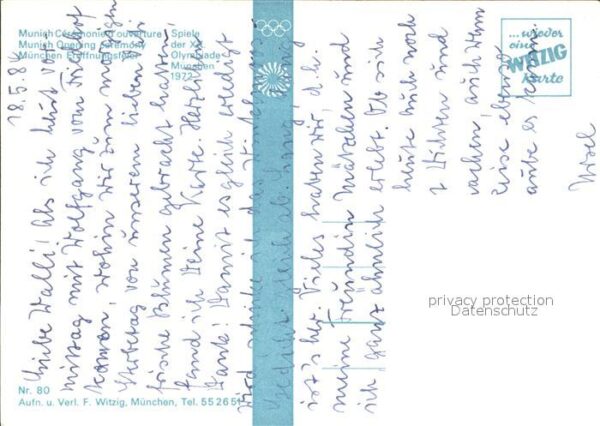 Munich Cérémonie d'ouverture
Munich Opening ceremony
München Eröffnungsfeier
Spiele
der XX.
Olympiade
München
1972
...wieder
eine
WITZIG
Karte
18.5.84
Liebe Walli! Als ich heut vor-
mittag mit Wolfgang vom Friedhof
kommen, wohin wir zum morgigen
Sterbetag von unserem lieben Vati
frische Blumen gebracht hatten,
fand ich Deine Karte. Herzlichen
Dank! Damit es gleich erledigt
wird, schicke ich das
Gedicht gleich ab. Lang
ist's her. Vieles haben wir, d.h.
meine Freundin Mätzchen und
ich ganz ähnlich erlebt. Ob sich
heute auch noch
und
machen, auch wenn
ebenso
es kaum.
Nr. 80
Aufn. u. Verl. F. Witzig, München, Tel. 55 26 51
privacy protection
Datenschutz